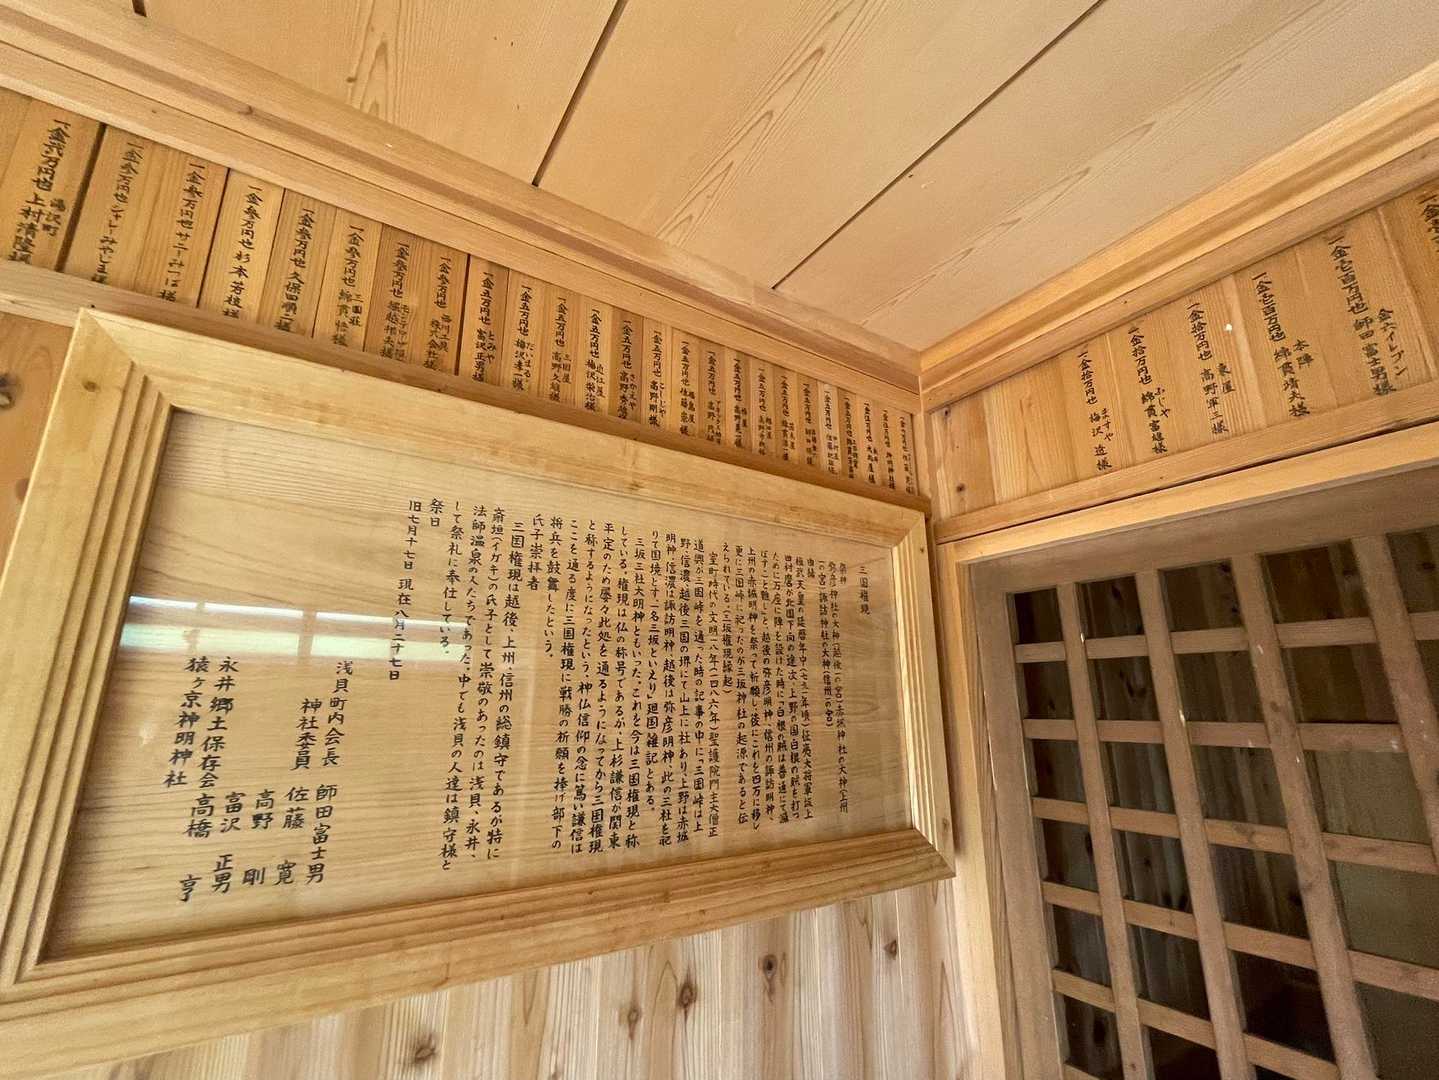 三国権現
祭神
弥彦神社の大神(越後一の宮)赤城神社の大神(上州
一の宮)諏訪神社の大神(信州一の宮)
由緒
桓武天皇の延暦年中(七九一年頃)征夷大将軍坂上
田村麿が北国下向の途次、上野の国白根の賊を打つ
ために万座に陣を設けた時に「白根の賊は普通にて滅
ぼすこと難し」と、越後の弥彦明神、信州の諏訪明神、
上州の赤城明神を祭って祈願し、後にこれを四方に移し
更に三国峠に祀ったのが三坂神社の起源であると伝
えられている。(三坂権現縁起)
室町時代の文明一八年(一四八六年)聖護院門主大僧正
道興が三国峠を通った時の記事の中に「三国峠は上
野、信濃、越後三国の堺にて山上に社あり、上野は赤城
明神、信濃は諏訪明神、越後は弥彦明神、此の三社を祀
りて国境とす、一名三坂といえり」廻国雑記とある。
三坂三社大明神ともいった。これを今は三国権現と称
している。権現は仏の称号であるが、上杉謙信が関東
平定のため屡々此処を通るようになってから三国権現
と称するようになったという。神仏信仰の念に篤い謙信は
ここを通る度に三国権現に戦勝の祈願を捧げ部下の
将兵を鼓舞したという。
氏子崇拝者
三国権現は越後、上州、信州の総鎮守であるが特に
斎垣(イガキ)の氏子として崇敬のあったのは浅貝、永井、
法師温泉の人たちであった。中でも浅貝の人達は鎮守様と
して祭礼に奉仕している。
祭日
旧七月十七日 現在八月二十七日
浅貝町内会長 師田富士男
神社委員 佐藤 寛
高野 剛
永井郷土保存会 富沢 正男
猿ヶ京神明神社 高橋 亨
一金壱百万円也 金六イレブン 師田富士男様
一金壱百万円也 本陣 綿貫靖夫様
一金拾万円也 東屋 高野軍三様
一金拾万円也 ふじや 綿貫富雄様
一金拾万円也 ますや 梅沢 近様
一金五万円也 こしじや 高野剛様
一金五万円也 さかえや 高野秀雄様
一金五万円也 近江屋 梅沢栄治様
一金五万円也 三田屋 高野久雄様
一金五万円也 だいまる 梅沢孝一様
一金五万円也 とみや 富沢正男様
一金参万円也 西川工具株式会社様
一金参万円也 堀越邦夫様
一金参万円也 三国荘 綿貫悟様
一金参万円也 久保田順二様
一金参万円也 杉本芳枝様
一金参万円也 サニーみつば様
一金参万円也 シャレーみやじま様
一金弐万円也 湯沢町 上村清隆様